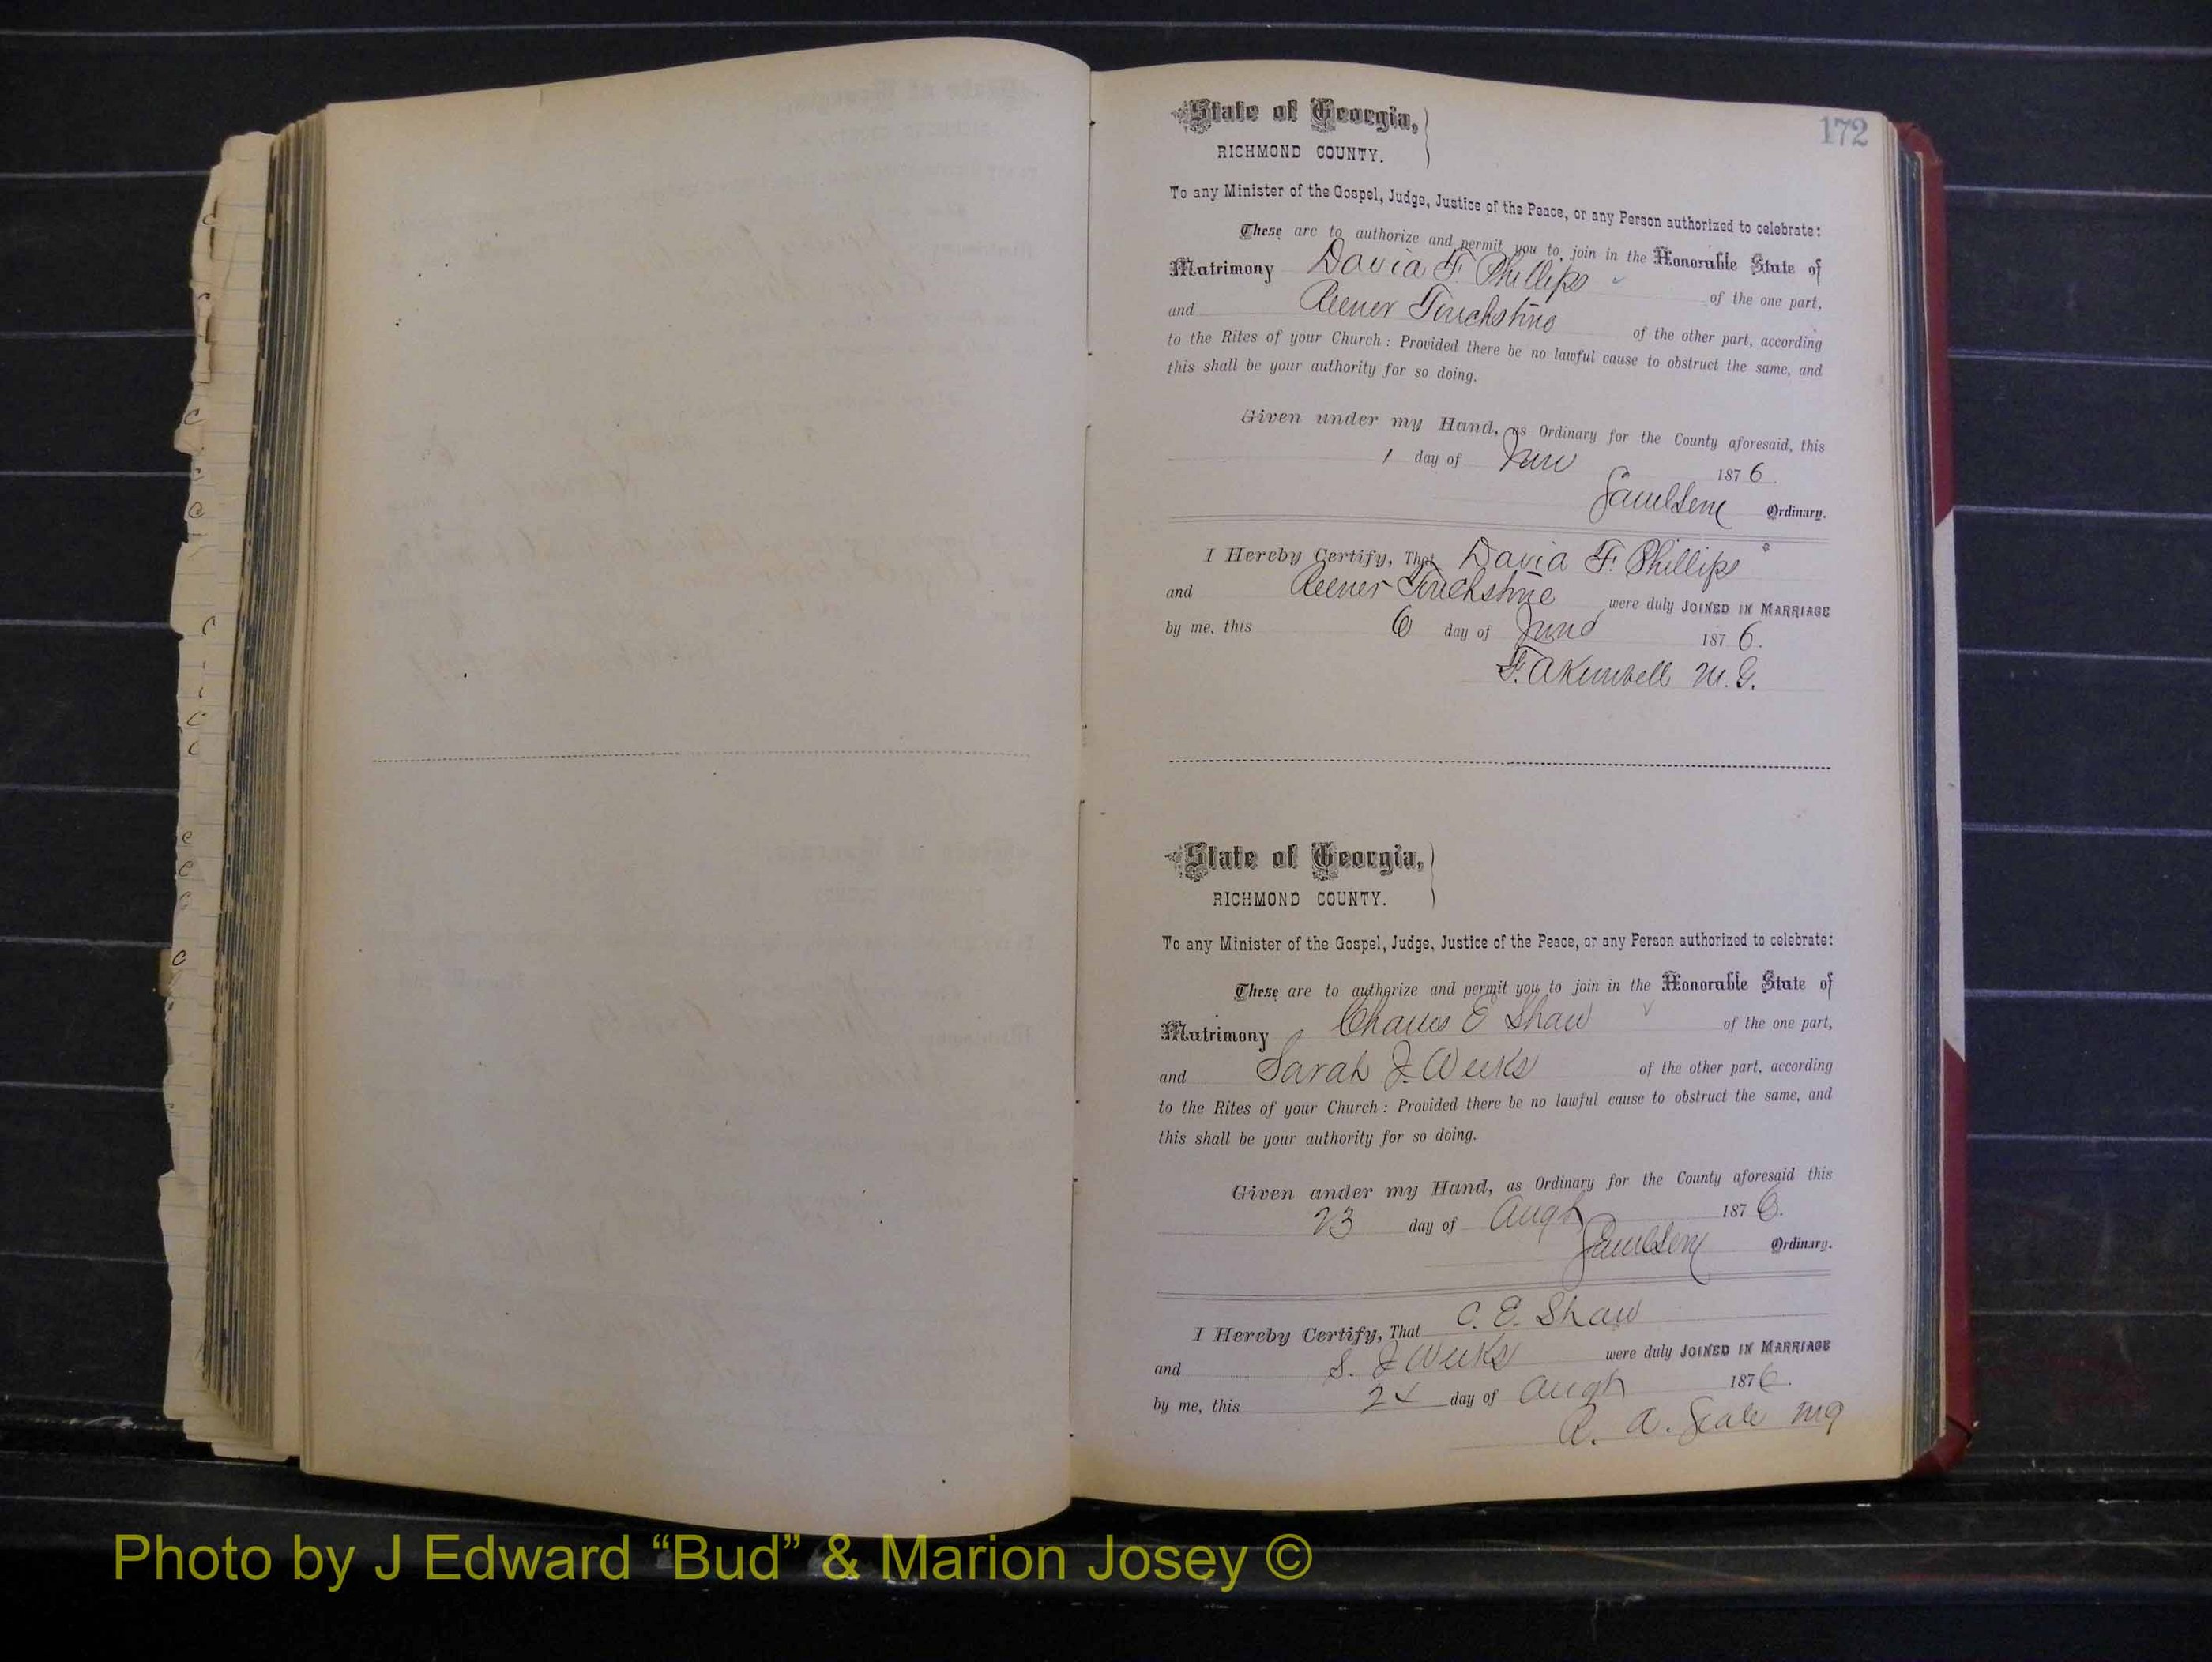 172
State of Georgia,
RICHMOND COUNTY.
To any Minister of the Gospel, Judge, Justice of the Peace, or any Person authorized to celebrate:
These are to authorize and permit you to join in the Honorable State of
Matrimony David F. Phillips of the one part,
and Touchstine of the other part, according
to the Rites of your Church: Provided there be no lawful cause to obstruct the same, and
this shall be your authority for so doing.
Given under my Hand, as Ordinary for the County aforesaid, this
1 day of June 1876
Ordinary.
I Hereby Certify, That David F. Phillips
and Touchstine were duly JOINED IN MARRIAGE
by me, this 6 day of June 1876.
F. A Kimbell M. G.
State of Georgia,
RICHMOND COUNTY.
To any Minister of the Gospel, Judge, Justice of the Peace, or any Person authorized to celebrate:
These are to authorize and permit you to join in the Honorable State of
Matrimony Charles E Shaw of the one part,
and Sarah J. Weeks of the other part, according
to the Rites of your Church: Provided there be no lawful cause to obstruct the same, and
this shall be your authority for so doing.
Given under my Hand, as Ordinary for the County aforesaid this
23 day of Augt 1876.
Ordinary.
I Hereby Certify, That C. E. Shaw
and S. J Weeks were duly JOINED IN MARRIAGE
by me, this 24 day of Augt 1876.
R. A. Seale MG
Photo by J Edward “Bud” & Marion Josey ©